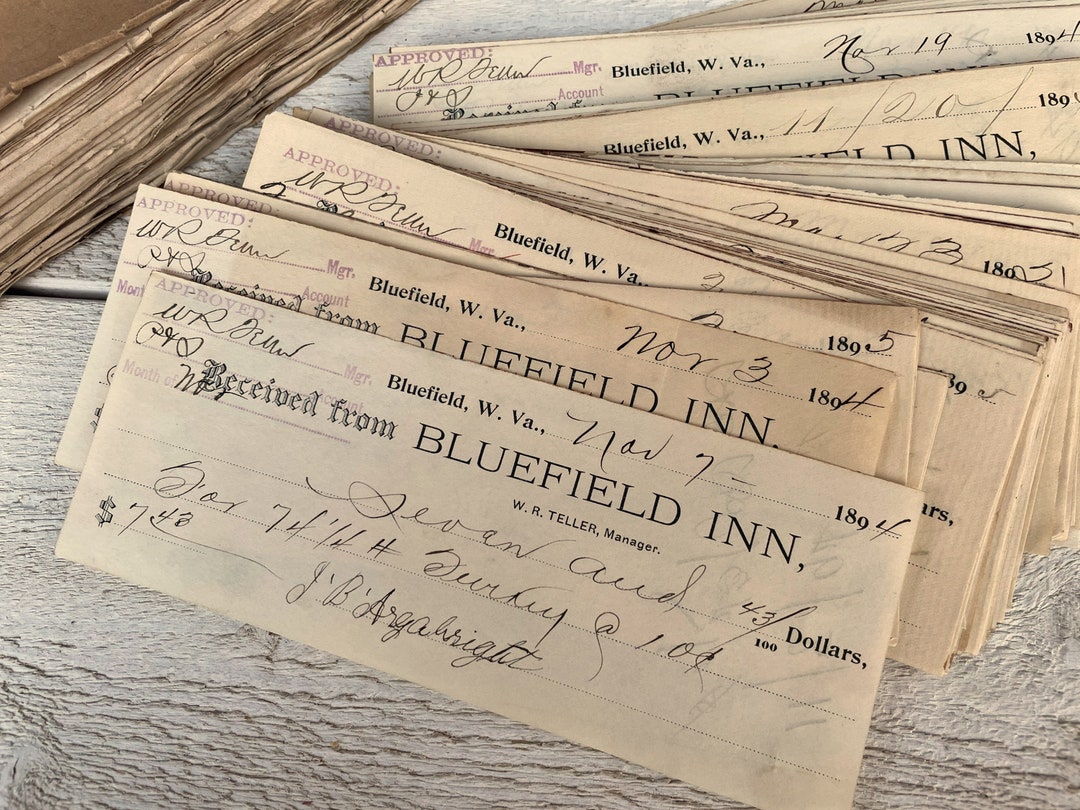 APPROVED:
Mgr. Bluefield, W. Va., Nov 19 1894
P&S Account
Received from BLUEFIELD INN,
Bluefield, W. Va., 11/20/ 189
BLUEFIELD INN,
APPROVED:
189
APPROVED:
W R Teller Mgr. Bluefield, W. Va.,
1895
APPROVED:
APPROVED:
W R Teller Mgr. Bluefield, W. Va., Nov 3 1894
P&S Account
Month Received from BLUEFIELD INN,
ars,
APPROVED:
W R Teller Mgr. Bluefield, W. Va., Nov 7 - 1894
P&S Account
Month of Nov Received from BLUEFIELD INN,
W. R. TELLER, Manager.
Sevan and 43/100 Dollars,
For 74 1/4 # Turkey @ 10¢
$ 7 43 J B Argabright